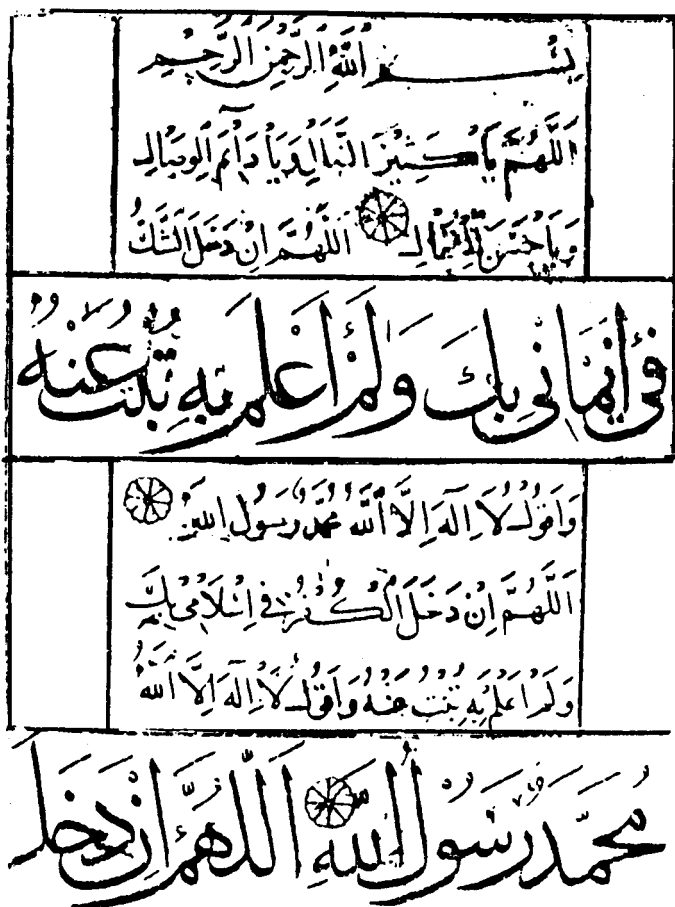 بِسْمِ اللّٰهِ الرَّحْمٰنِ الرَّحِيْمِ
اَللّٰهُمَّ يَا كَثِيْرَ النَّوَالِ وَيَا دَآئِمَ الْوِصَالِ
وَيَا حُسْنَ الْفِعَالِ اَللّٰهُمَّ اِنْ دَخَلَ الشَّكُّ
فِیْ اِيْمَانِیْ بِكَ وَلَمْ اَعْلَمْ بِهٖ تُبْتُ عَنْهُ
وَاَقُوْلُ لَا اِلٰهَ اِلَّا اللّٰهُ مُحَمَّدٌ رَّسُوْلُ اللّٰهِ
اَللّٰهُمَّ اِنْ دَخَلَ الْكُفْرُ فِیْ اِسْلَامِیْ بِكَ
وَلَمْ اَعْلَمْ بِهٖ تُبْتُ عَنْهُ وَاَقُوْلُ لَا اِلٰهَ اِلَّا اللّٰهُ
مُحَمَّدٌ رَّسُوْلُ اللّٰهِ اَللّٰهُمَّ اِنْ دَخَلَ